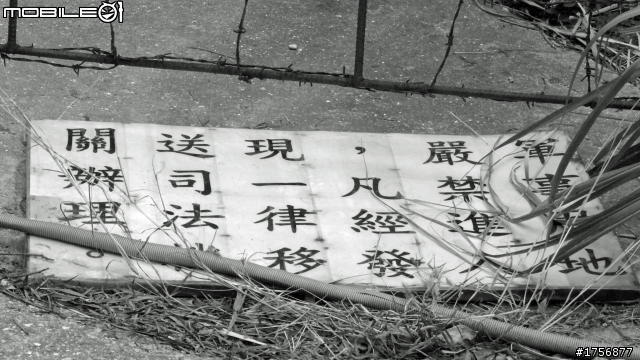 mobile01
軍事地
嚴禁進入
，凡經發
現一律移
送司法機
關辦理。
#1756877